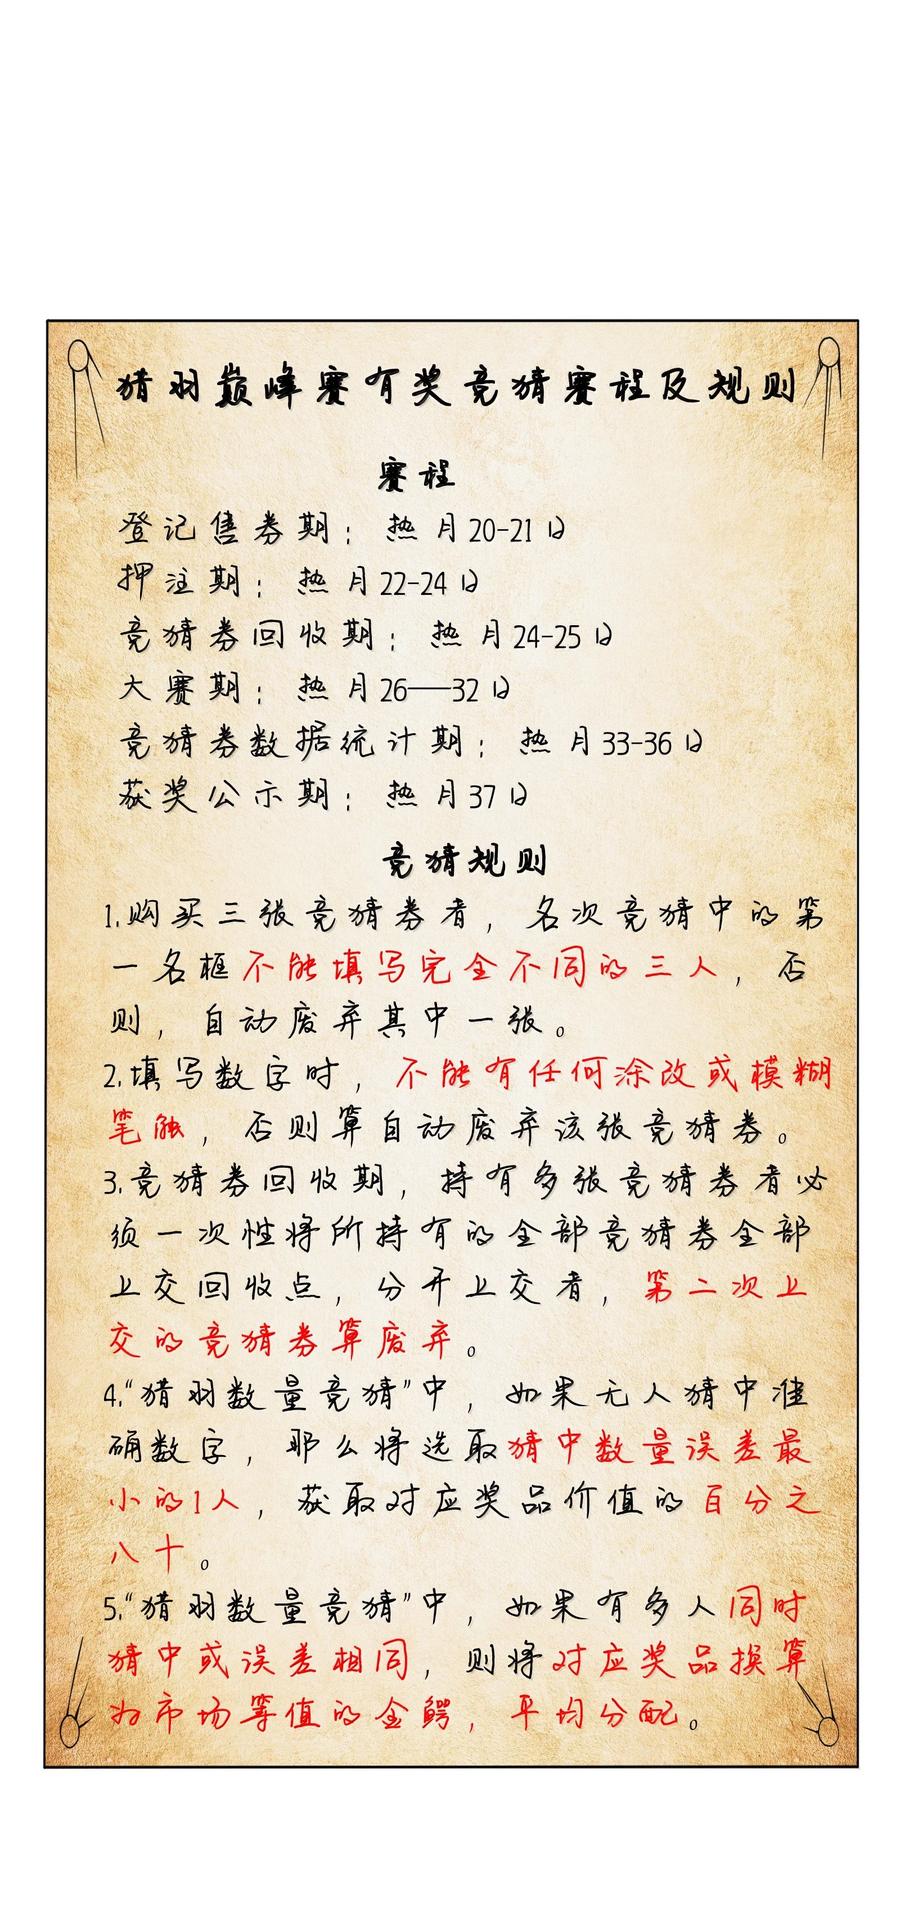 猎羽巅峰赛有奖竞猜赛程及规则
赛程
登记售券期：热月20-21日
押注期：热月22-24日
竞猜券回收期：热月24-25日
大赛期：热月26——32日
竞猜券数据统计期：热月33-36日
获奖公示期：热月37日
竞猜规则
1.购买三张竞猜券者，名次竞猜中的第
一名框不能填写完全不同的三人，否
则，自动废弃其中一张。
2.填写数字时，不能有任何涂改或模糊
笔触，否则算自动废弃该张竞猜券。
3.竞猜券回收期，持有多张竞猜券者必
须一次性将所持有的全部竞猜券全部
上交回收点，分开上交者，第二次上
交的竞猜券算废弃。
4.“猎羽数量竞猜”中，如果无人猜中准
确数字，那么将选取猜中数量误差最
小的1人，获取对应奖品价值的百分之
八十。
5.“猎羽数量竞猜”中，如果有多人同时
猜中或误差相同，则将对应奖品换算
为市场等值的金鳄，平均分配。